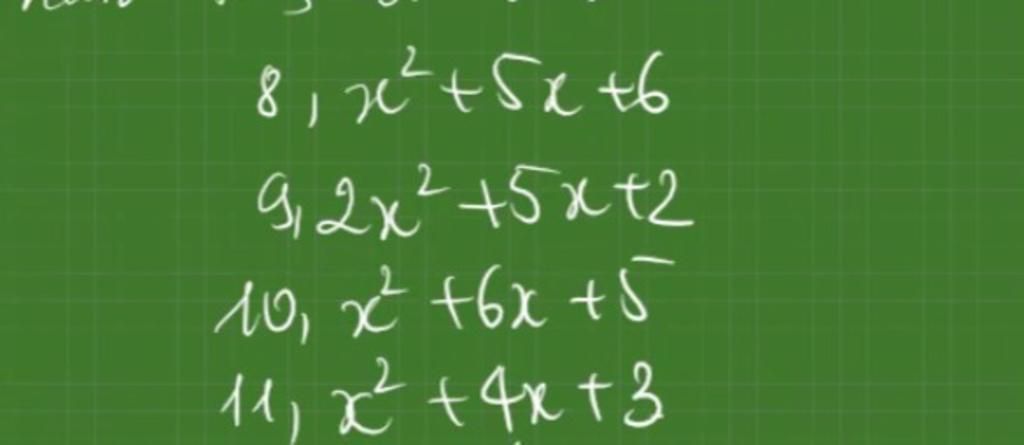 8, x² + 5x + 6
9, 2x² + 5x + 2
10, x² + 6x + 5
11, x² + 4x + 3